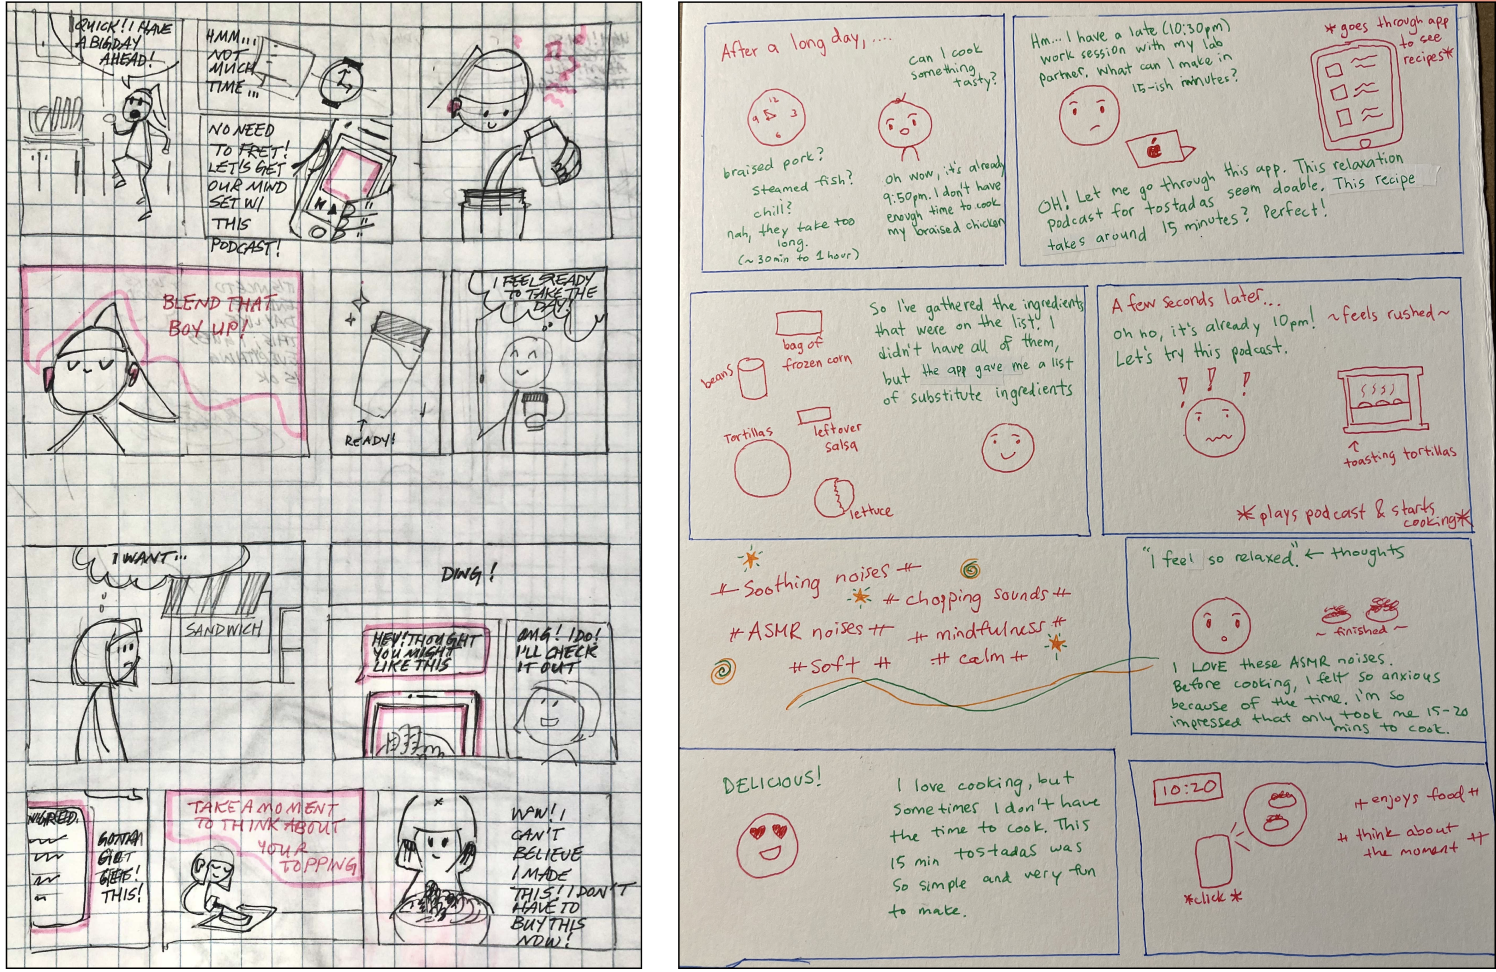 QUICK! I HAVE
A BIG DAY
AHEAD!
HMM...
NOT
MUCH
TIME...
NO NEED
TO FRET!
LET'S GET
OUR MIND
SET W/
THIS
PODCAST!
BLEND THAT
BOY UP!
READY!
I FEEL READY
TO TAKE THE
DAY!
I WANT...
SANDWICH
DING!
HEY! THOUGHT
YOU MIGHT
LIKE THIS
OMG! I DO!
I'LL CHECK
IT OUT
INGRED.
GOTTA
GET
THIS!
TAKE A MOMENT
TO THINK ABOUT
YOUR
TOPPING
WOW! I
CAN'T
BELIEVE
I MADE
THIS! I DON'T
HAVE TO
BUY THIS
NOW!
After a long day,....
Can I cook
something
tasty?
12
9 3
6
braised pork?
steamed fish?
chili?
nah, they take too
long.
(~30 min to 1 hour)
oh wow, it's already
9:50pm. I don't have
enough time to cook
my braised chicken
Hm... I have a late (10:30pm)
work session with my lab
partner. What can I make in
15-ish minutes?
*goes through app
to see
recipes*
OH! Let me go through this app. This relaxation
podcast for tostadas seem doable. This recipe
takes around 15 minutes? Perfect!
bag of
frozen corn
beans
Tortillas
leftover
salsa
lettuce
So I've gathered the ingredients
that were on the list. I
didn't have all of them,
but the app gave me a list
of substitute ingredients
A few seconds later...
oh no, it's already 10pm! ~feels rushed~
Let's try this podcast.
! ! !
↑
toasting tortillas
*plays podcast & starts
cooking*
#Soothing noises #
# chopping sounds #
# ASMR noises #
# mindfulness #
#Soft #
# calm #
"I feel so relaxed." ← thoughts
~ finished ~
I LOVE these ASMR noises.
Before cooking, I felt so anxious
because of the time. i'm so
impressed that only took me 15-20
mins to cook.
DELICIOUS!
I love cooking, but
Sometimes I don't have
the time to cook. This
15 min tostadas was
so simple and very fun
to make.
10:20
*click*
# enjoys food #
# think about
the moment #